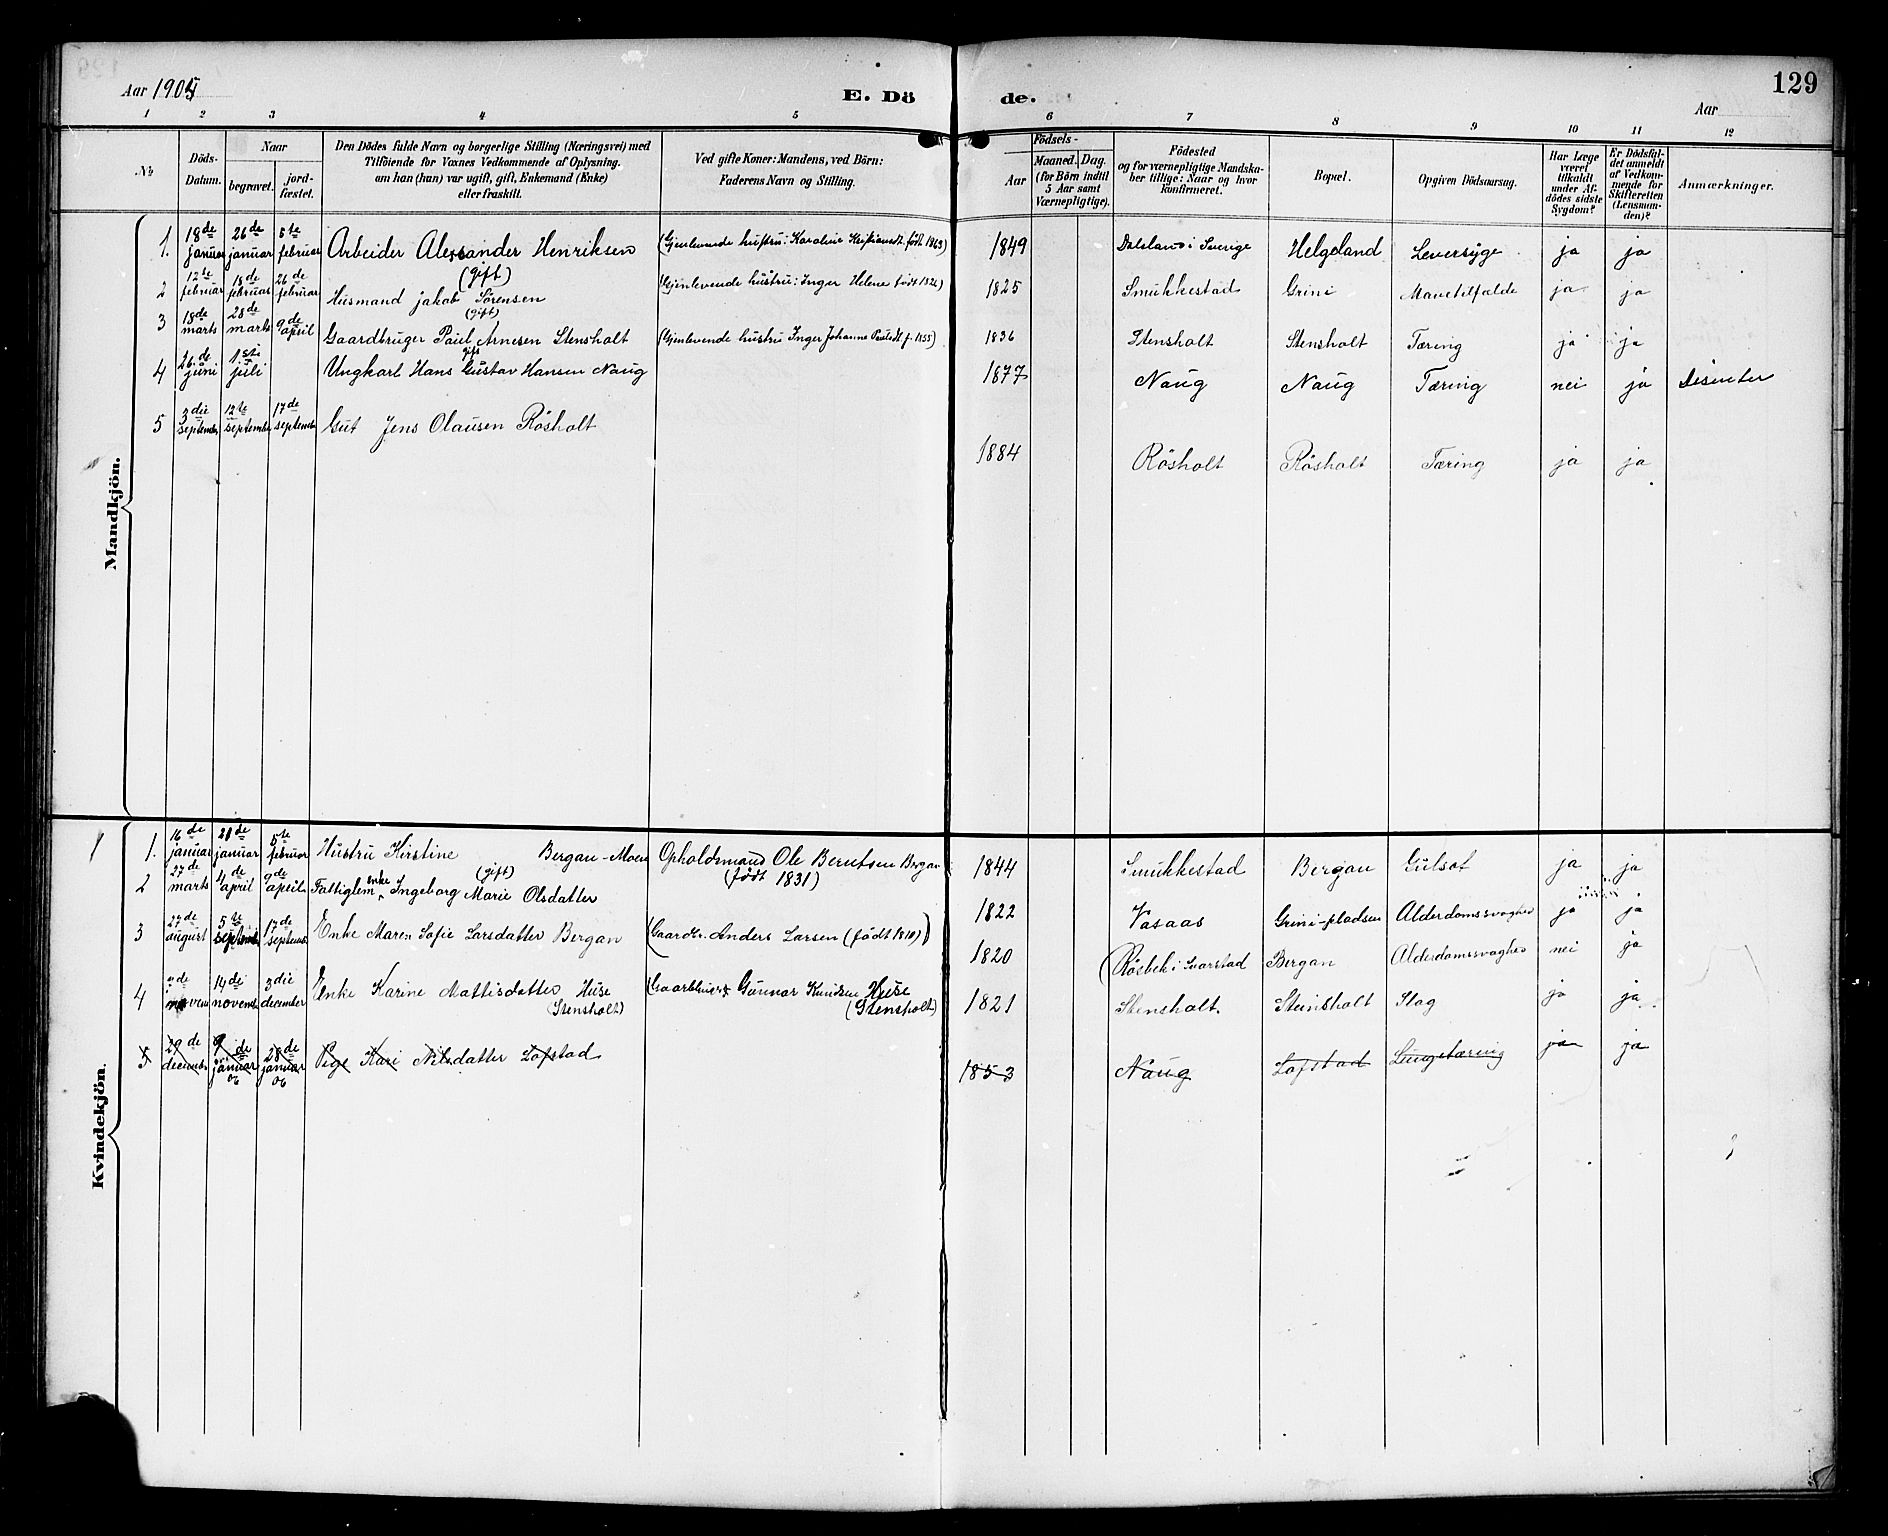 Aar 1905
E. Döde.
129
Aar
1 2 3 4 5 6 7 8 9 10 11 12
№
Döds-Datum.
Naar
begravet.
jord-fæstet.
Den Dödes fulde Navn og borgerlige Stilling (Næringsvei) med
Tilföiende for Voxnes Vedkommende af Oplysning.
om han (hun) var ugift, gift, Enkemand (Enke)
eller fraskilt.
Ved gifte Koner: Mandens, ved Börn:
Faderens Navn og Stilling.
Födsels-
Aar
Maaned. Dag.
(for Börn indtil
5 Aar samt
Værnepligtige).
Födested
og for værnepligtige Mandska-
ber tillige: Naar og hvor
konfirmeret.
Bopæl.
Opgiven Dödsaarsag.
Har Læge
været
tilkaldt
under Af-
dödes sidste
Sygdom?
Er Dödsfal-
det anmeldt
af Vedkom-
mende for
Skifteretten
(Lensman-
den)?
Anmærkninger.
Mandkjön.
1. 18de januar 26de januar 5te februar Arbeider Alexander Henriksen (gift) (Gjenlevende hustru: Karoline født 1863) 1849 Dalsland i Sverige Helgeland Leversyge ja ja
2 12te februar 18de februar 26de februar Husmand jakob Sörensen (gift) (Gjenlevende hustru: Inger Helene født 1826) 1825 Smukkestad Grini Mavetilfælde ja ja
3 18de marts 28de marts 9de april Gaardbruger Paul Arnesen Stensholt gift (Gjenlevende hustru Inger Johanne f. 1855) 1836 Stensholt Stensholt Tæring ja ja
4 26de juni 1ste juli Ungkarl Hans Gustav Hansen Naug 1877 Naug Naug Tæring nei ja Disenter
5 3die september 12te september 17de september Gut Jens Olausen Rösholt 1884 Rösholt Rösholt Tæring ja ja
Kvindekjön.
1. 16de januar 28de januar 5te februar Hustru Kirstine Bergan-Moen (gift) Opholdsmand Ole Berntsen Bergan (født 1831) 1844 Smukkestad Bergan Gulsot ja ja
2 27de marts 4de april 9de april Fattiglem enke Ingeborg Marie Olsdatter 1822 Vasaas Grini-pladsen Alderdomssvaghed ja ja
3 27de august 5te septemb. 17de septemb. Enke Maren Sofie Larsdatter Bergan (Gaardbr. Anders Larsen (født 1810)) 1820 (Rösbek i Svarstad Bergan Alderdomssvaghed nei ja
4 novem 14de novemb. 3die december Enke Karine Mattisdatter Huse (Stensholt) Gunnar Knudsen Huse (Stensholt) 1821 Stensholt. Stensholt Slag ja ja
5 29de decemb. 9de januar 06 28de januar 06 Pige Kari Nilsdatter Lofstad 1853 Naug Lofstad Lungetæring ja ja